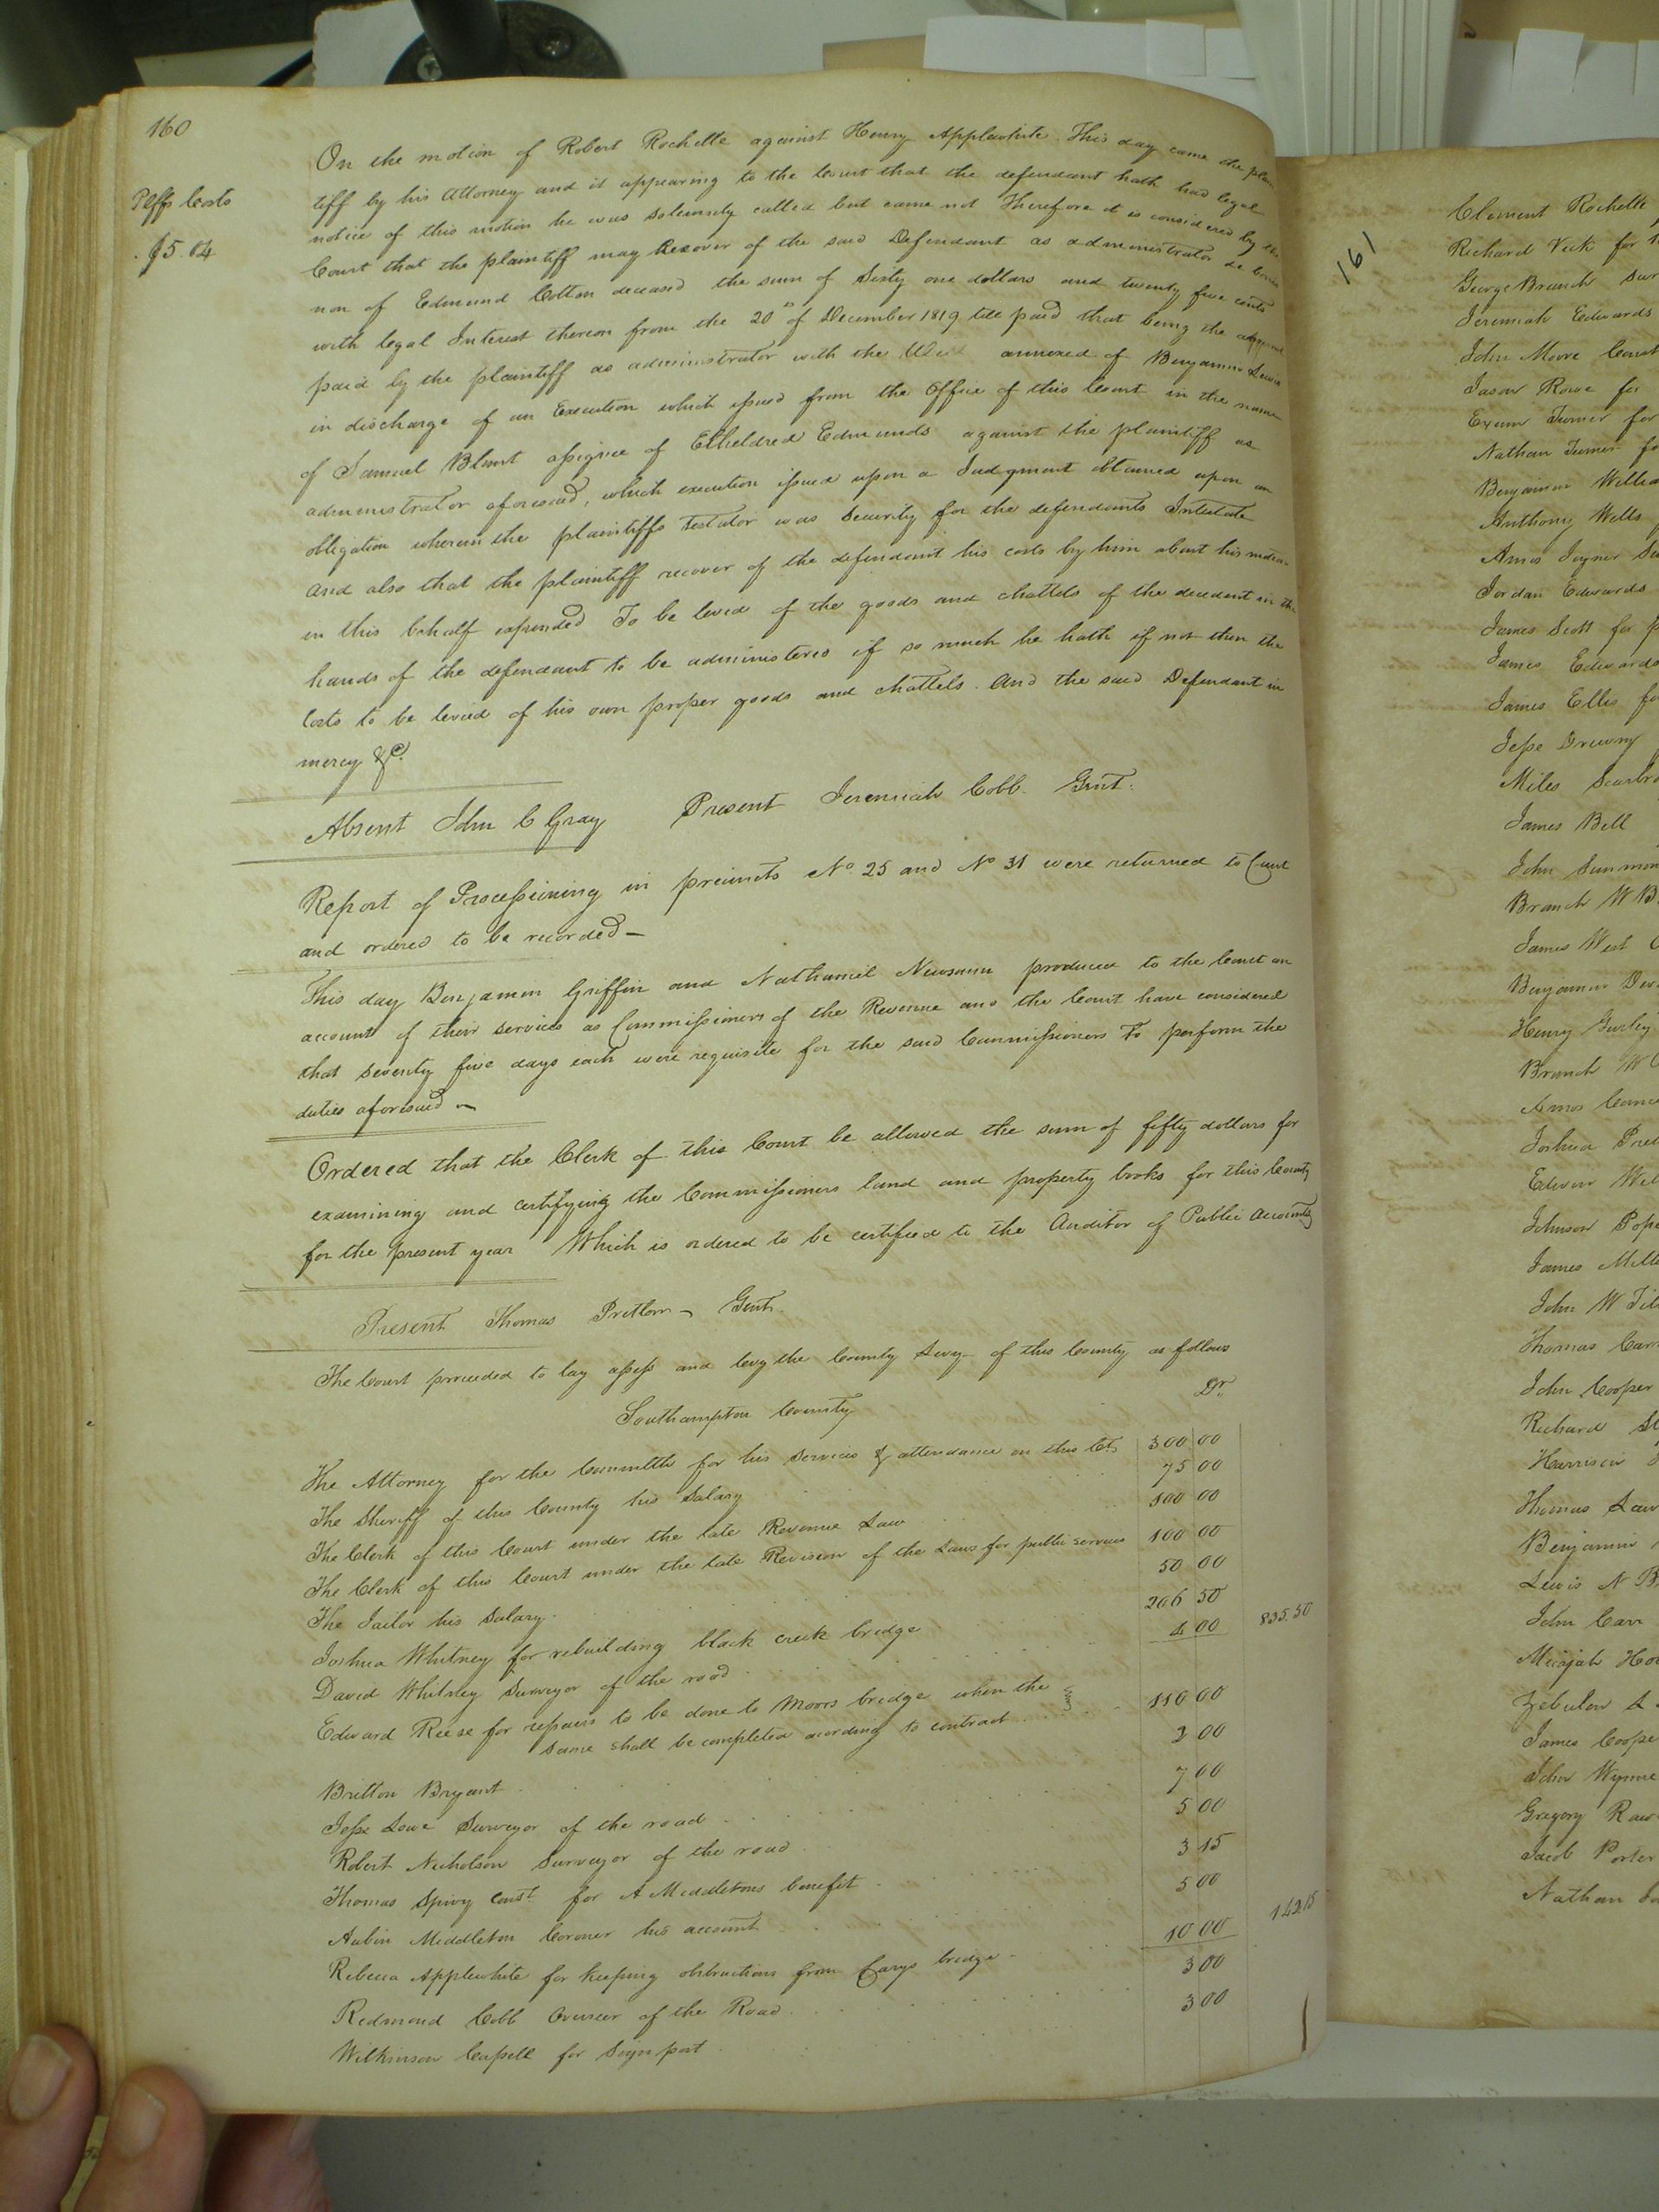 160
Plffs Costs
$5.04
On the motion of Robert Rochelle against Henry Applewhite. This day came the plain
tiff by his Attorney and it appearing to the Court that the defendant hath had legal
notice of this motion he was solemnly called but came not Therefore it is considered by the
Court that the plaintiff may Recover of the said Defendant as administrator de bonis
non of Edmund Cotton deceased the sum of Sixty one dollars and twenty five cents
with legal Interest thereon from the 20th of December 1819 till paid that being the amount
paid by the plaintiff as administrator with the Will annexed of Benjamin Lewis
in discharge of an Execution which issued from the Office of this Court in the name
of Samuel Blunt assignee of Etheldred Edmunds against the plaintiff as
administrator aforesaid, which execution issued upon a Judgment obtained upon an
obligation wherein the plaintiffs testator was Security for the defendants Intestate
And also that the plaintiff recover of the defendant his costs by him about his motion
in this behalf expended To be levied of the goods and chattels of the decedent in the
hands of the defendant to be administered if so much he hath if not then the
Costs to be levied of his own proper goods and chattels. And the said Defendant in
mercy &c.
Absent John C Gray Present Jeremiah Cobb Gent.
Report of Processioning in precincts No 25 and No 31 were returned to Court
and ordered to be recorded—
This day Benjamin Griffin and Nathaniel Newsum produced to the Court an
account of their services as Commissioners of the Revenue and the Court have considered
that seventy five days each were requisite for the said Commissioners To perform the
duties aforesaid—
Ordered that the Clerk of this Court be allowed the sum of fifty dollars for
examining and certifying the Commissioners land and property books for this County
for the present year Which is ordered to be certified to the Auditor of Public Accounts
Present Thomas Pretlow Gent.
The Court proceeded to lay assess and levy the County Levy of this County as follows
Southampton County Dr.
The Attorney for the Commth for his services & attendance on this Ct. 300 00
The Sheriff of this County his Salary 75 00
The Clerk of this Court under the late Revenue Law 100 00
The Clerk of this Court under the late Revision of the Laws for public services 100 00
The Jailor his Salary 50 00
Joshua Whitney for rebuilding black creek bridge 206 50
David Whitney Surveyor of the road 4 00 835.50
Edward Reese for repairs to be done to Moors bridge when the
same shall be completed acording to contract 110 00
Britton Bryant 2 00
Jesse Lowe Surveyor of the road 7 00
Robert Nicholson Surveyor of the road 5 00
Thomas Spivy Const. for A Middletons benefit 3 15
Aubin Middleton Coroner his account 5 00
Rebecca Applewhite for keeping obstructions from Carys bridge 10 00 142.15
Redmond Cobb Overseer of the Road 3 00
Wilkinson Capell for Sign post 3 00
161
Clement Rochelle
Richard Vick for
George Branch Sur
Jeremiah Edwards
John Moore Const
Jason Rowe for
Exum Turner for
Nathan Turner fo
Benjamin Willia
Anthony Wells
Amos Joyner Su
Jordan Edwards
James Scott for p
James Edwards
James Ellis fo
Jesse Drewry
Miles Scarbro
James Bell
John Simmon
Branch W B
James West
Benjamin Dev
Henry Gurley
Branch W
Amos
Joshua Pret
Edwin Wel
Johnson Pope
James Mill
John W
Thomas Carr
John Cooper
Richard
Harrison
Thomas Law
Benjamin
Lewis N B
John Carr
Micajah Ho
Zebulon
James Coope
John Wynne
Gregory Raw
Jacob Porter
Nathan